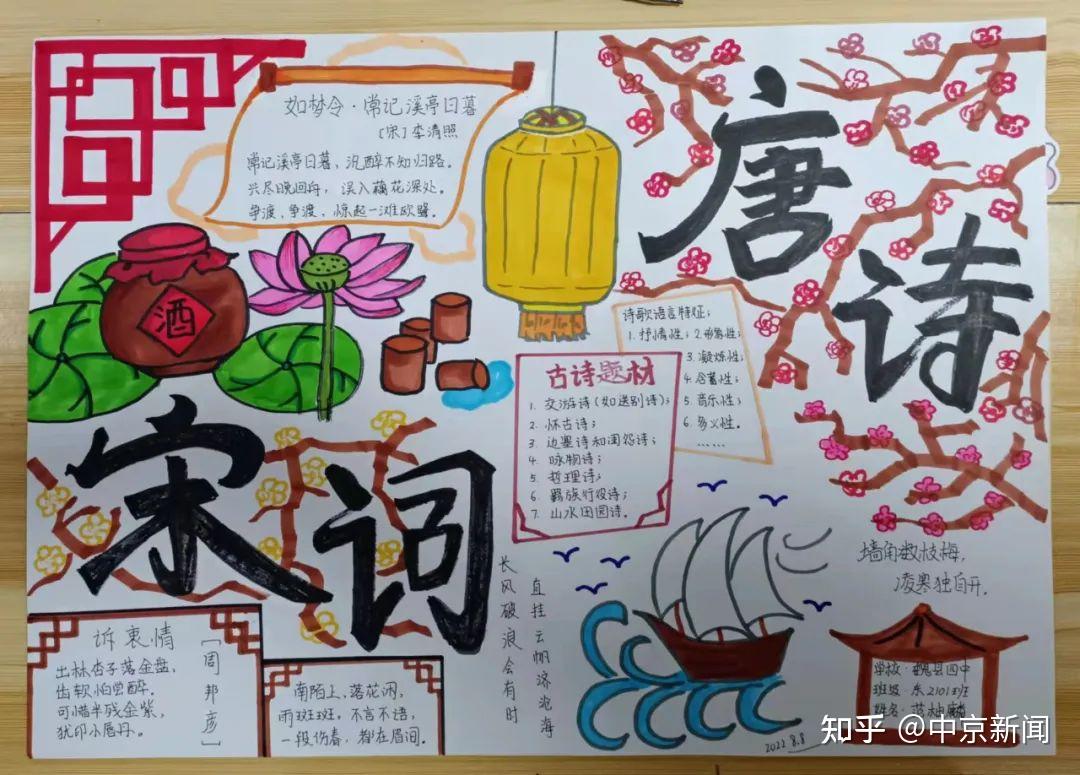 如梦令·常记溪亭日暮
[宋]李清照
常记溪亭日暮，沉醉不知归路。
兴尽晚回舟，误入藕花深处。
争渡，争渡，惊起一滩欧鹭。
唐诗
酒
诗歌语言特征：
1. 抒情性；2. 形象性；
3. 凝炼性；
4. 含蓄性；
5. 音乐性；
6. 多义性。
……
古诗题材
1. 交游诗（如送别诗）；
2. 怀古诗；
3. 边塞诗和闺怨诗；
4. 咏物诗；
5. 哲理诗；
6. 羁旅行役诗；
7. 山水田园诗。
宋词
长风破浪会有时
直挂云帆济沧海
墙角数枝梅，
凌寒独自开。
诉衷情
[周邦彦]
出林杏子落金盘，
齿软怕尝酸。
可惜半残金紫，
犹印小唇丹。
南陌上，落花闲，
雨斑斑，不言不语，
一段伤春，都在眉间。
学校：魏县四中
班级：东2101班
姓名：范
2022 8.8
知乎 @中京新闻